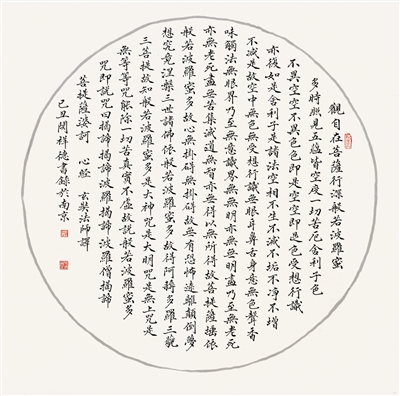 觀自在菩薩行深般若波羅蜜
多時照見五蘊皆空度一切苦厄舍利子色
不異空空不異色色即是空空即是色受想行識
亦復如是舍利子是諸法空相不生不滅不垢不淨不增
不減是故空中無色無受想行識無眼耳鼻舌身意無色聲香
味觸法無眼界乃至無意識界無無明亦無無明盡乃至無老死
亦無老死盡無苦集滅道無智亦無得以無所得故菩提薩埵依
般若波羅蜜多故心無掛礙無掛礙故無有恐怖遠離顛倒夢
想究竟涅槃三世諸佛依般若波羅蜜多故得阿耨多羅三藐
三菩提故知般若波羅蜜多是大神咒是大明咒是無上咒是
無等等咒能除一切苦真實不虛故說般若波羅蜜多
咒即說咒曰揭諦揭諦波羅揭諦波羅僧揭諦
菩提薩婆訶 心經 玄奘法師譯
己丑 祥德書錄於南京